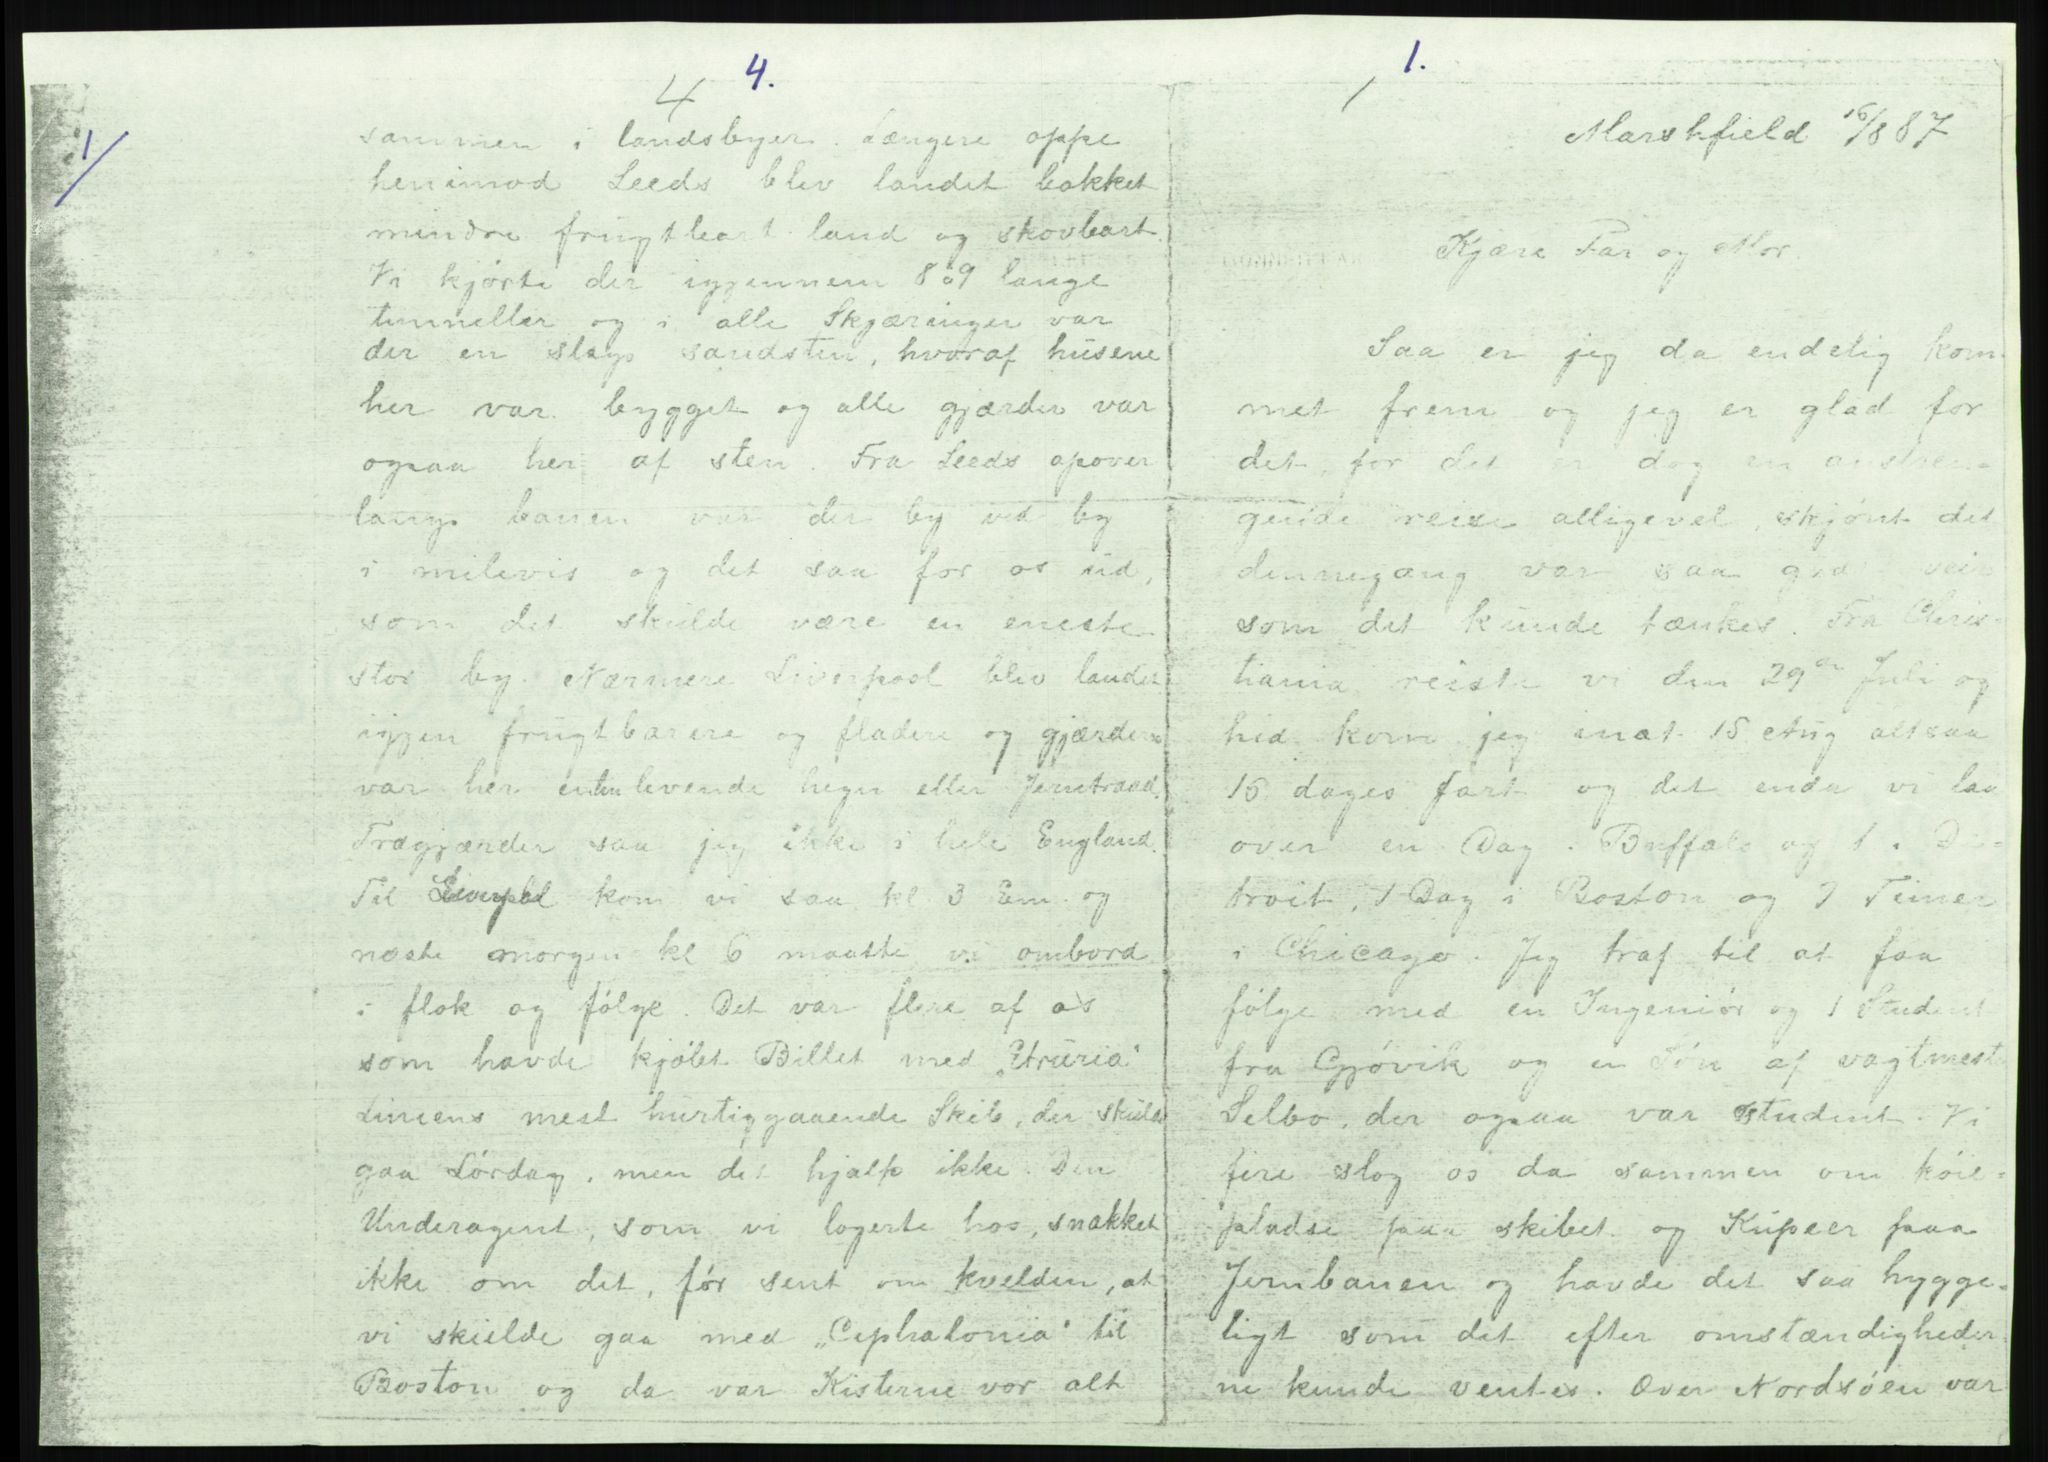 1/
4 4.
sammen i landsbyer. Længere oppe
henimod Leeds blev landet bakket
mindre frugtbart land og skovbart.
Vi kjørte der igjennem 8 à 9 lange
tunneller og i alle Skjæringer var
der en slags sandsten, hvoraf husene
her var bygget og alle gjærder var
ogsaa her af sten. Fra Leeds opover
langs banen var der by ved by
i milevis og det saa for os ud,
som det skulde være en eneste
stor by. Nærmere Liverpool blev landet
igjen frugtbarere og fladere og gjærderne
var her enten levende hegn eller Jerntraad.
Trægjærder saa jeg ikke i hele England.
Til Liverpol kom vi saa kl 3 Em. og
næste morgen kl 6 maatte vi ombord
i flok og følge. Det var flere af os
som havde kjøbt Billet med „Etruria“
Liniens mest hurtiggaaende Skib, der skulde
gaa Lørdag, men det hjalp ikke. Den
Underagent, som vi logerte hos, snakket
ikke om det, før sent om kvelden, at
vi skulde gaa med „Cephalonia“ til
Boston og da var Kisterne vor alt
1.
Marshfield 16/8 87
Kjære Far og Mor.
Saa er jeg da endelig kom-
met frem og jeg er glad for
det, for det er dog en anstren-
gende reise alligevel, skjønt det
dennegang var saa god veir
som det kunde tænkes. Fra Chris-
tiania reiste vi den 29de Juli og
hid kom jeg inat 15 Aug altsaa
16 dages fart og det enda vi laa
over en Dag i Buffalo og 1 i De-
troit, 1 Dag i Boston og 7 Timer
i Chicago. Jeg traf til at faa
følge med en Ingeniør og 1 Student
fra Gjøvik og en Søn af vagtmester
Selbo, der ogsaa var student. Vi
fire slog os da sammen om køie-
pladse paa skibet og Kupeer paa
Jernbanen og havde det saa hygge-
ligt som det efter omstændigheder-
ne kunde ventes. Over Nordsøen var